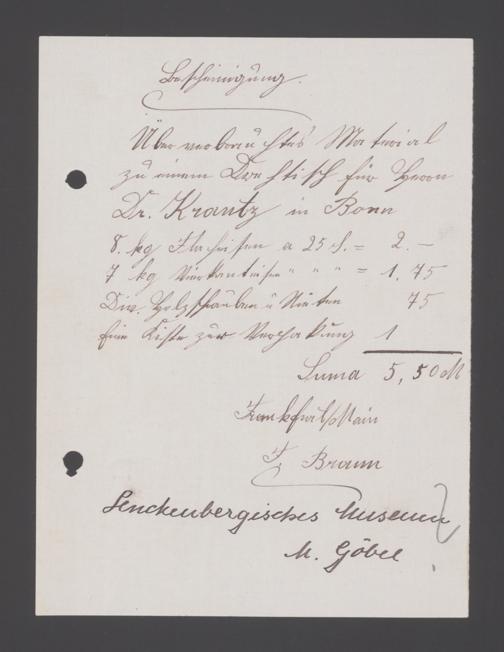 Bescheinigung.
Über verbrauchtes Material
zu einem Drehtisch für Herrn
Dr. Krantz in Bonn
8. kg Flacheisen a 25 ₰. = 2. –
7 kg Vierkanteisen " " " = 1,75
Div. Holzschrauben u Nieten 75
Eine Kiste zur Verpackung 1
Suma 5,50 M
Frankfurt/Main
F. Braun
Senckenbergisches Museum
M. Göbel